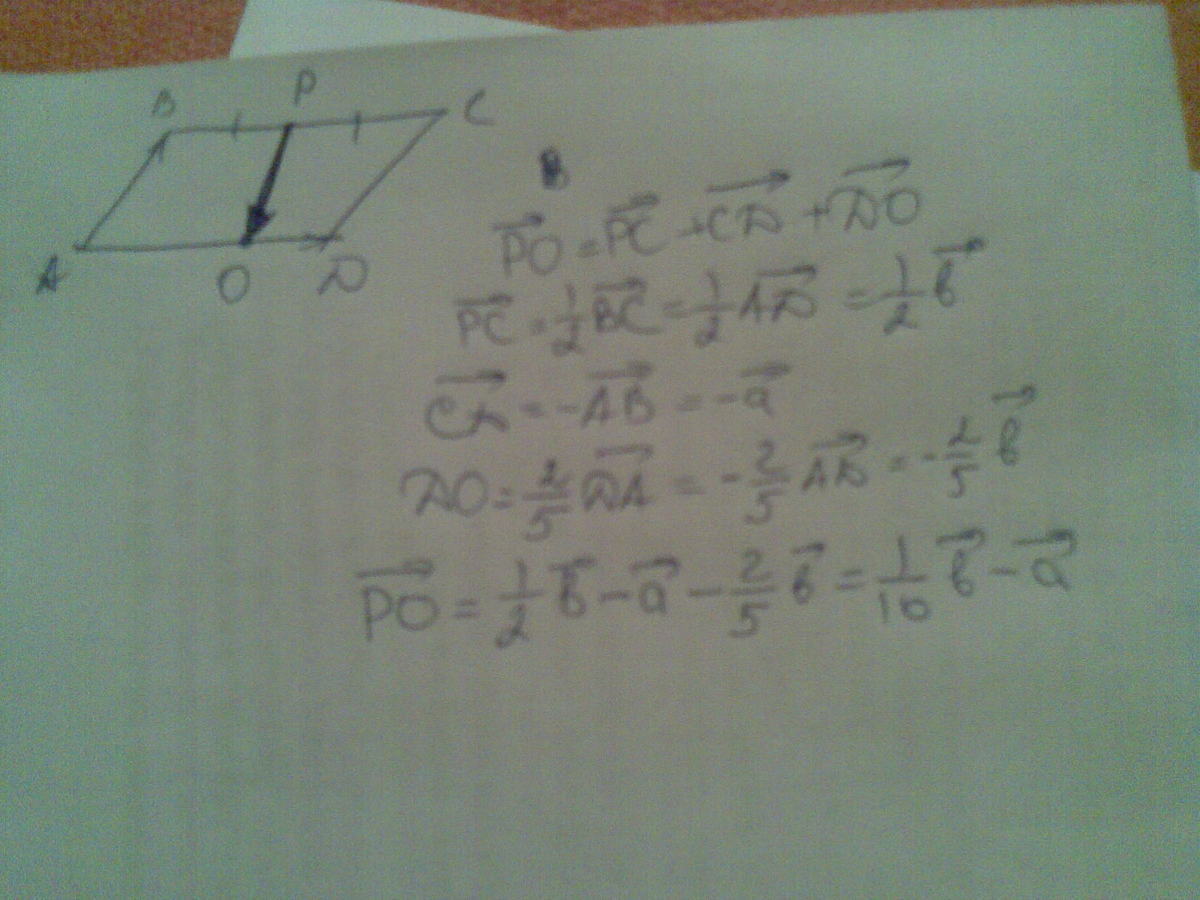 B P C
A O D
B
PO⃗ = PC⃗ + CD⃗ + DO⃗
PC⃗ = 1/2 BC⃗ = 1/2 AD⃗ = 1/2 b⃗
CD⃗ = -AB⃗ = -a⃗
DO = 2/5 DA⃗ = -2/5 AD⃗ = -2/5 b⃗
PO⃗ = 1/2 b⃗ - a⃗ - 2/5 b⃗ = 1/10 b⃗ - a⃗